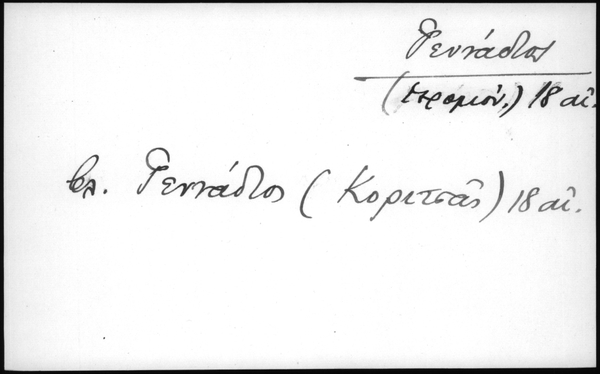 Γεννάδιος
18 αἰ.
βλ. Γεννάδιος (Κοριτσᾶς) 18 αἰ.